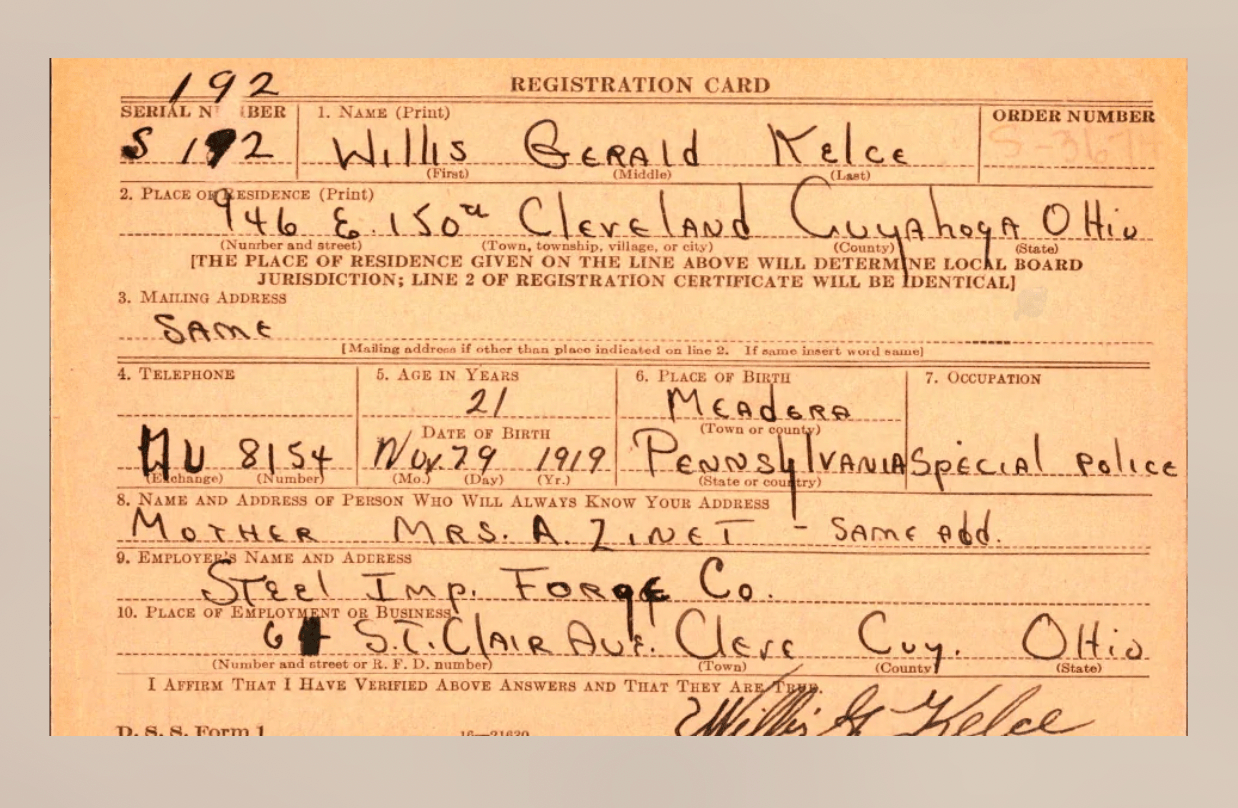 192
REGISTRATION CARD
SERIAL NUMBER 1. NAME (Print) ORDER NUMBER
S 192 Willis GERAld KElcE S-367
(First) (Middle) (Last)
2. PLACE OF RESIDENCE (Print)
946 E. 150 ClEvElAnd CuyAhogA OHio
(Number and street) (Town, township, village, or city) (County) (State)
[THE PLACE OF RESIDENCE GIVEN ON THE LINE ABOVE WILL DETERMINE LOCAL BOARD
JURISDICTION; LINE 2 OF REGISTRATION CERTIFICATE WILL BE IDENTICAL]
3. MAILING ADDRESS
SAME
[Mailing address if other than place indicated on line 2. If same insert word same]
4. TELEPHONE 5. AGE IN YEARS 6. PLACE OF BIRTH 7. OCCUPATION
21 MEAdERA
DATE OF BIRTH (Town or county)
8154 Nov. 29 1919 PENNSylVANIA SpEciAl PolicE
(Exchange) (Number) (Mo.) (Day) (Yr.) (State or country)
8. NAME AND ADDRESS OF PERSON WHO WILL ALWAYS KNOW YOUR ADDRESS
MOTHER MRS. A. ZINET - SAME Add.
9. EMPLOYER'S NAME AND ADDRESS
STEEl Imp. FORgE Co.
10. PLACE OF EMPLOYMENT OR BUSINESS
S.T. ClAIR AvE. ClEvE Cuy. OHio
(Number and street or R. F. D. number) (Town) (County) (State)
I AFFIRM THAT I HAVE VERIFIED ABOVE ANSWERS AND THAT THEY ARE TRUE.
Willis G Kelce
D. S. S. Form 1 16—21630